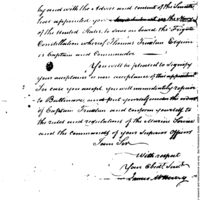 by and with the Advice and consent of the Senate
has appointed you
of the United States, to serve on board the Frigate
Constellation whereof Thomas Truxtun Esquire
is Captain and Commander
You will be pleased to signify
your acceptance or non acceptance of this appointment
In case you accept, you will immediately repair
to Baltimore and put yourself under the
of Captain Truxtun and conform yourself to
the rules and regulations of the Marine
and the commands of your Superior Officers
I am Sir
With respect
Your Obed. Servt
James McHenry